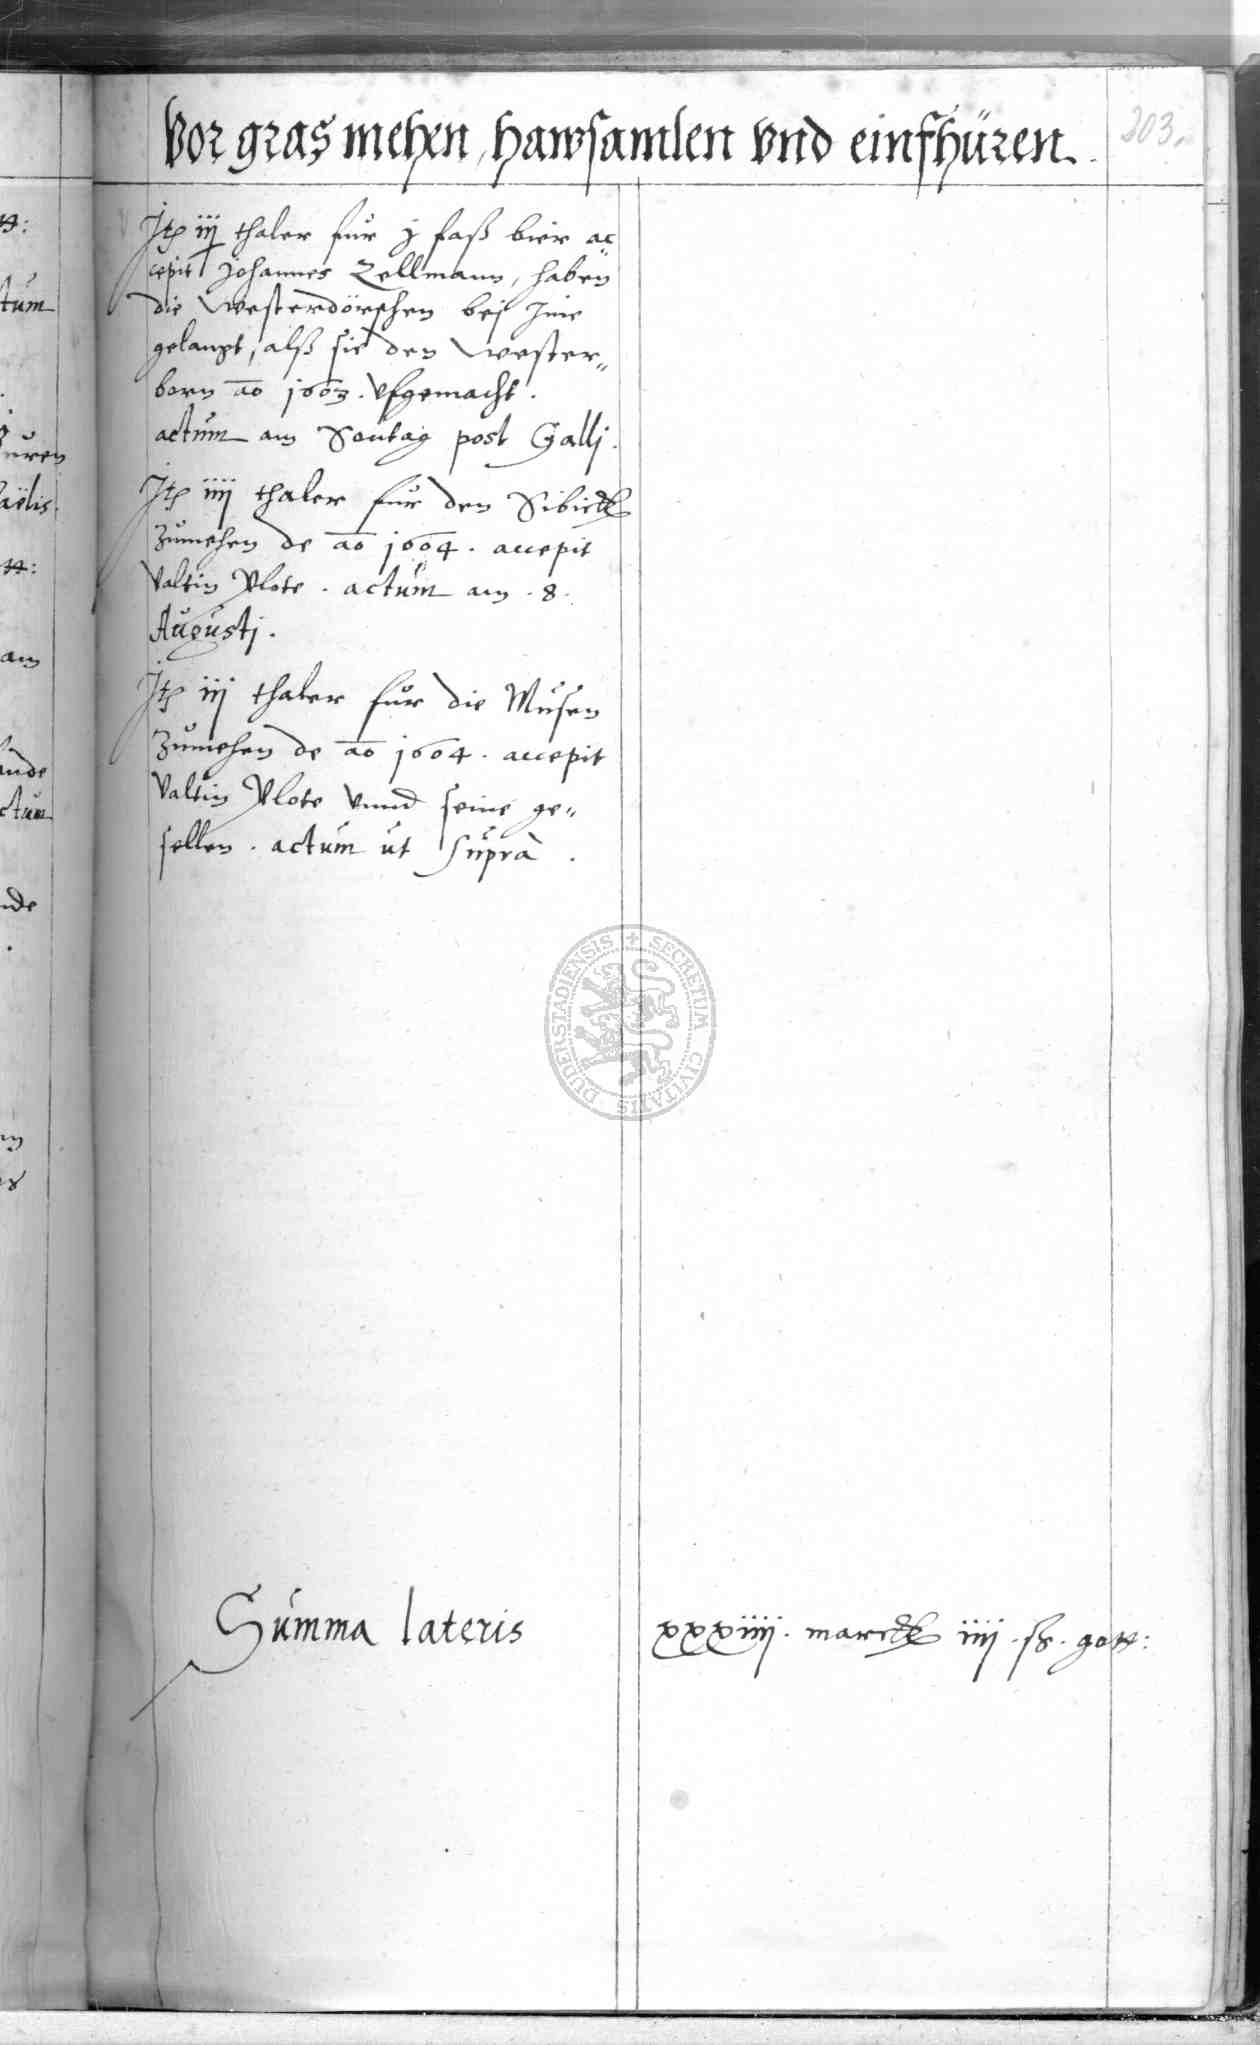 Vor gras mehen, hawsamlen vnd einfhüren.
203.
Jtem iij thaler für j faß bier ac
cepit Johannes Zellmann, haben
die Westerdörffhen bei Jme
gelangt, alß sie den Wester„
born ao 1603. vfgemacht.
actum am Sontag post Galli.
Jtem iiij thaler für den Sibickk
zumehen de ao 1604. accepit
Valtin Plote. actum am .8.
Augusti.
Jtem iij thaler für die Musen
zumehen de ao 1604. accepit
Valtin Plote vnnd seine ge„
sellen. actum ut supra.
DUDERSTADIENSIS + SECRETUM CIVITATIS
Summa lateris xxxiiij. marckk iiij. ß. gott: